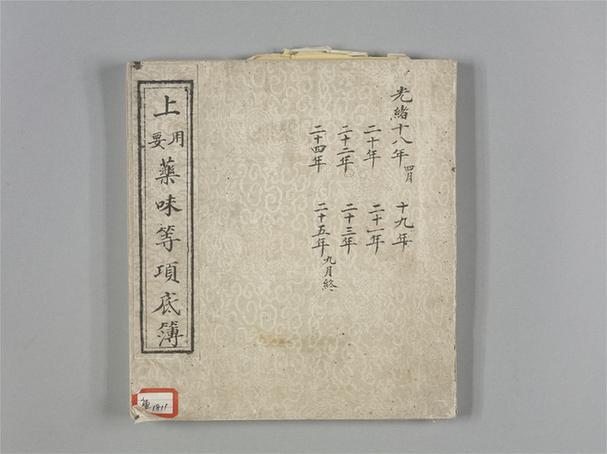 光緒十八年四月 十九年
二十年 二十一年
二十二年 二十三年
二十四年 二十五年九月終
上用要藥味等項底簿
1811